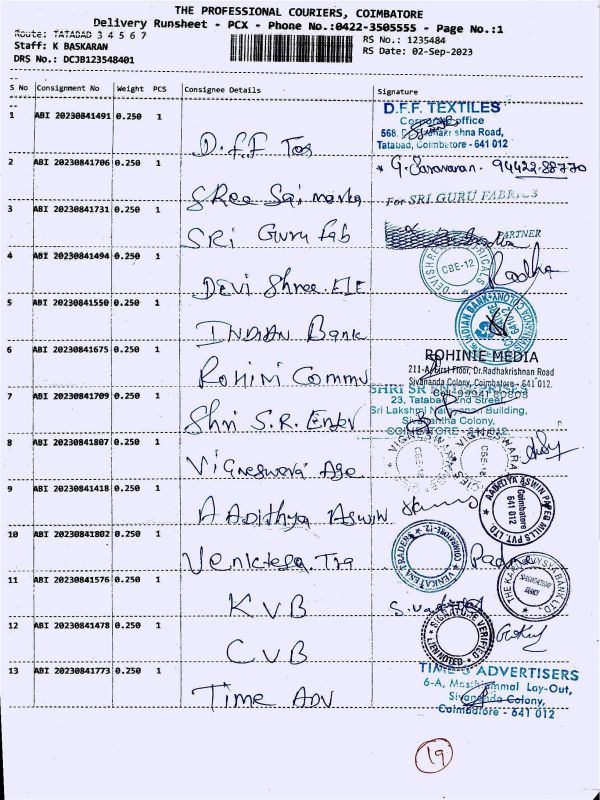 THE PROFESSIONAL COURIERS, COIMBATORE
Delivery Runsheet - PCX - Phone No.:0422-3505555 - Page No.:1
Route: TATABAD 3 4 5 6 7
RS No.: 1235484
Staff: K BASKARAN
RS Date: 02-Sep-2023
DRS No.: DCJB123548401
S No Consignment No Weight PCS Consignee Details Signature
1 ABI 20230841491 0.250 1
D.F.F Tex
D.F.F. TEXTILES
Corporate office
568, Dr.Radhakrishna Road,
Tatabad, Coimbatore - 641 012
2 ABI 20230841706 0.250 1
SRee Sai
G. Saravanan. 94422-88770
3 ABI 20230841731 0.250 1
SRi Guru Fab
For SRI GURU FABRICS
PARTNER
4 ABI 20230841494 0.250 1
Devi Shree. ElE
CBE-12
Radha
5 ABI 20230841550 0.250 1
INDIAN Bank
INDIAN BANK
6 ABI 20230841675 0.250 1
Rohini Commu
ROHINIE MEDIA
211-A, First Floor, Dr.Radhakrishnan Road
Sivananda Colony, Coimbatore - 641 012.
7 ABI 20230841709 0.250 1
Shri S.R. Enter
SHRI SR ENTERPRISES
23, Tatabad 2nd Street,
Sri Lakshmi Narayanan Building,
Sivanantha Colony,
COIMBATORE - 641 012
8 ABI 20230841807 0.250 1
Vigneswara Age
9 ABI 20230841418 0.250 1
AAdithya Aswin
AADITYA ASWIN PAPER MILLS PVT. LTD
Coimbatore
641 012
10 ABI 20230841802 0.250 1
Venktesa. Tra
VENKATESA TRADERS
COIMBATORE-12
11 ABI 20230841576 0.250 1
KVB
THE KARUR VYSYA BANK LTD
12 ABI 20230841478 0.250 1
CVB
SIGNATURE VERIFIED
LIEN NOTED
13 ABI 20230841773 0.250 1
Time Adv
TIME'S ADVERTISERS
6-A, Lay-Out,
Sivananda Colony,
Coimbatore - 641 012
19